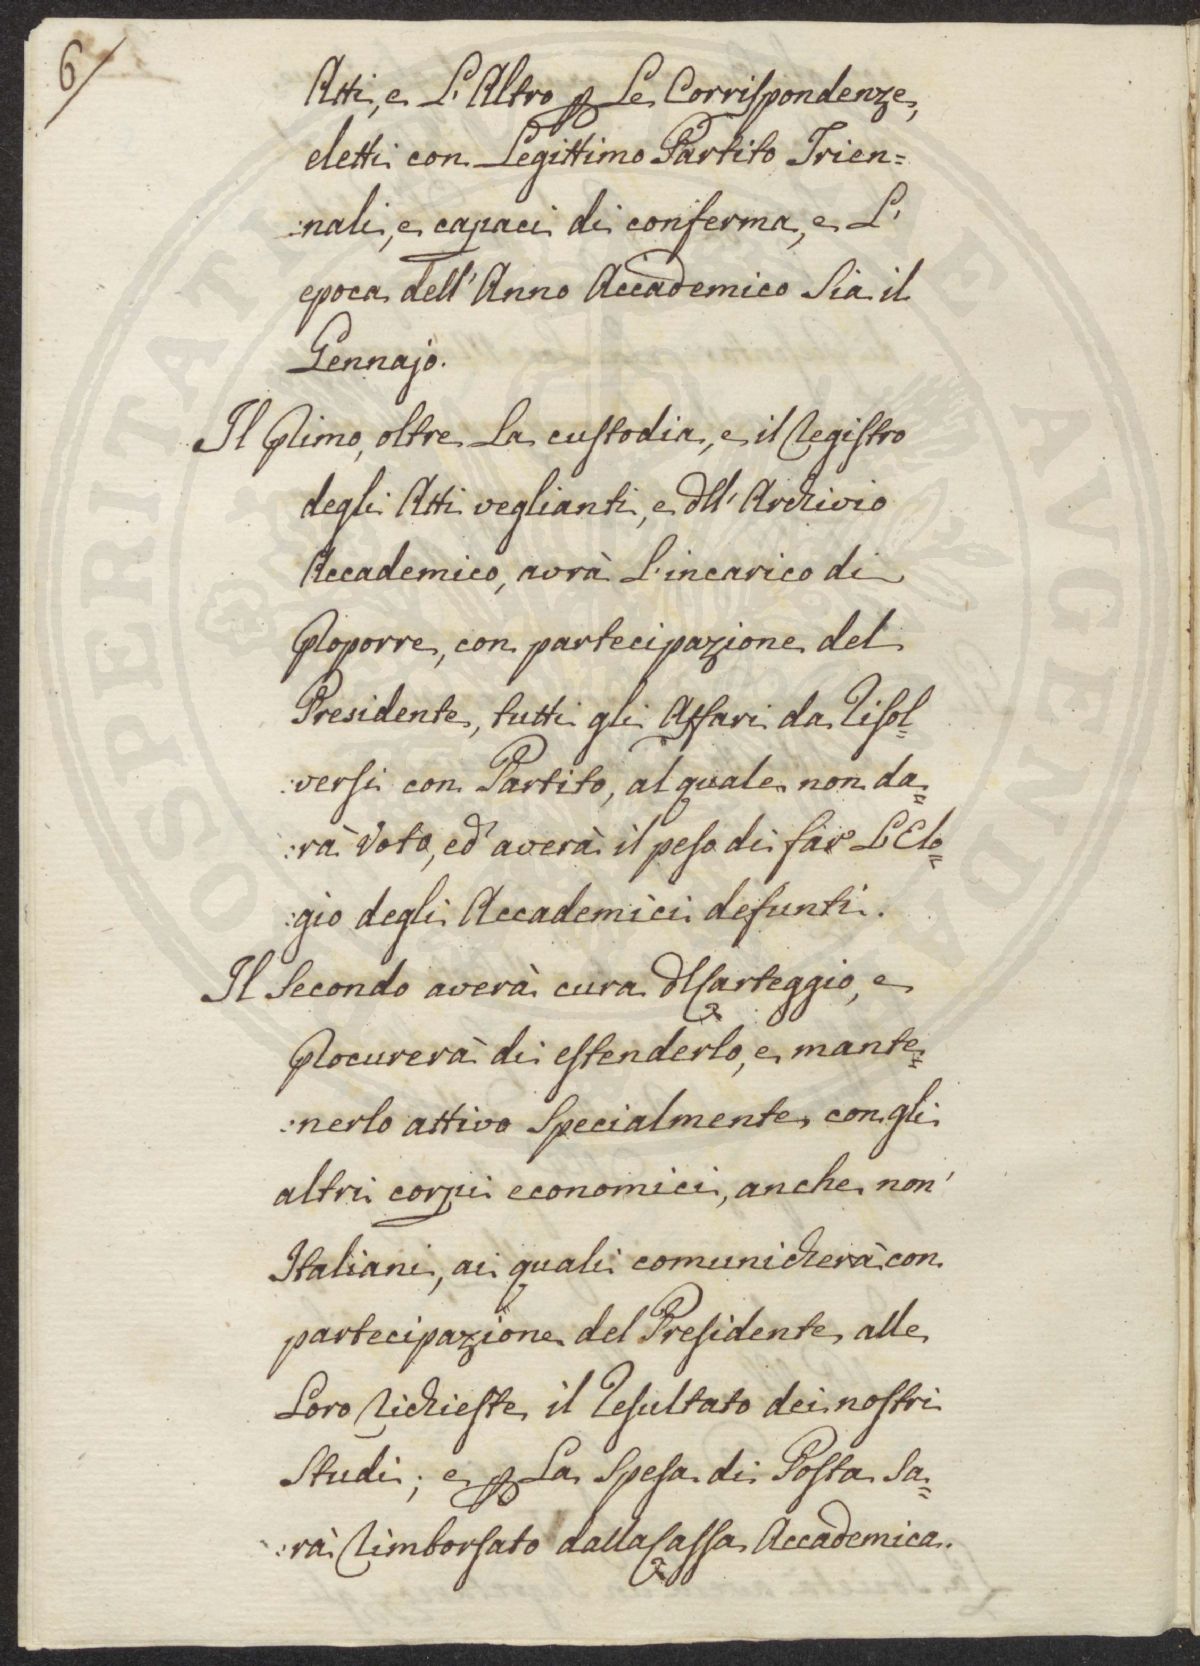 6/
Atti, e L'Altro p Le Corrispondenze,
eletti con Legittimo Partito Trien=
:nali, e capaci di conferma, e L'
epoca dell'Anno Accademico Sia il
Gennajo.
Il Primo, oltre La custodia, e il Registro
degli Atti veglianti, e dll'Archivio
Accademico, avrà L'incarico di
Proporre, con partecipazione del
Presidente, tutti gli Affari da Risol=
:versi con Partito, al quale non da=
:rà Voto, ed averà il peso di far L'Elo=
:gio degli Accademici defunti.
Il Secondo averà cura dl Carteggio, e
Procurerà di estenderlo, e mante=
:nerlo attivo Specialmente con gli
altri corpi economici, anche non
Italiani, ai quali comunicherà con
partecipazione del Presidente alle
Loro Richieste il Resultato dei nostri
Studi; e p La Spesa di Posta Sa=
:rà Rimborsato dalla Cassa Accademica.
PROSPERITATI AUGENDAE